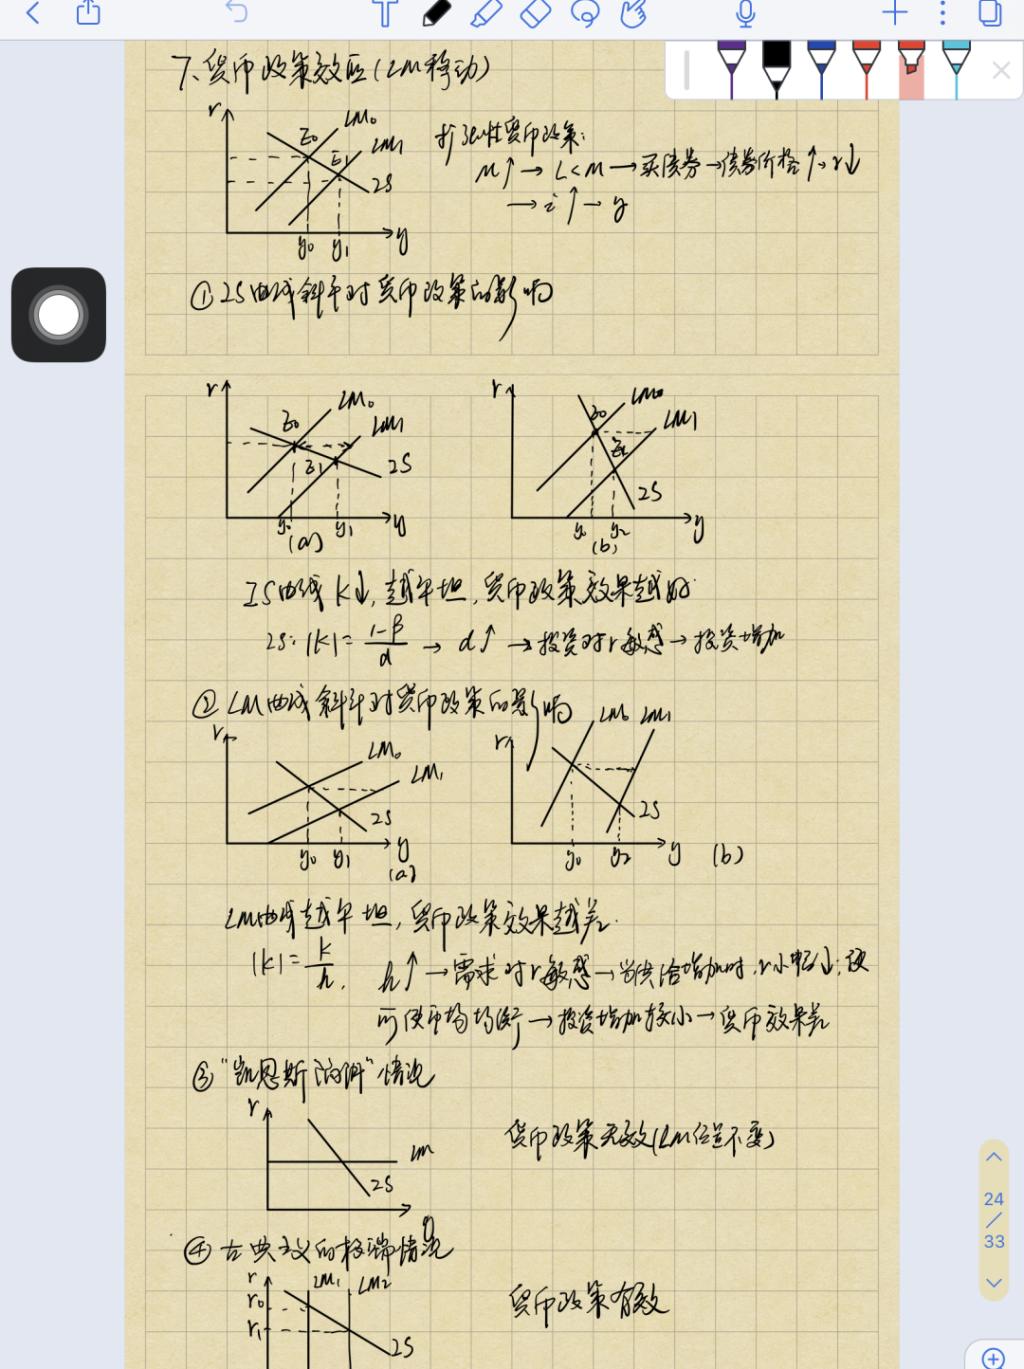 7、货币政策效应(LM移动)
r
LM₀
E₀
LM₁
E₁
IS
y₀ y₁ y
扩张性货币政策:
M↑→L<M→买债券→债券价格↑→r↓
→i↑→y
①IS曲线斜率对货币政策的影响
r
LM₀
E₀
LM₁
E₁
IS
y₀ y₁ y
(a)
r
LM₀
E₀
LM₁
E₂
IS
y₀ y₂ y
(b)
IS曲线k↓,越平坦,货币政策效果越好
IS:|k|=(1-β)/d→d↑→投资对r敏感→投资增加
②LM曲线斜率对货币政策的影响
r
LM₀
LM₁
IS
y₀ y₁ y
(a)
r
LM₀ LM₁
IS
y₀ y₂ y (b)
LM曲线越平坦,货币政策效果越差.
|k|=k/h, h↑→需求对r敏感→当供给增加时,r小幅↓,便
可使市场均衡→投资增加较小→货币效果差
③“凯恩斯陷阱”情况
r
LM
IS
y
货币政策无效(LM位置不变)
④古典主义的极端情况
r LM₁ LM₂
r₀
r₁
IS
货币政策有效
24
/
33